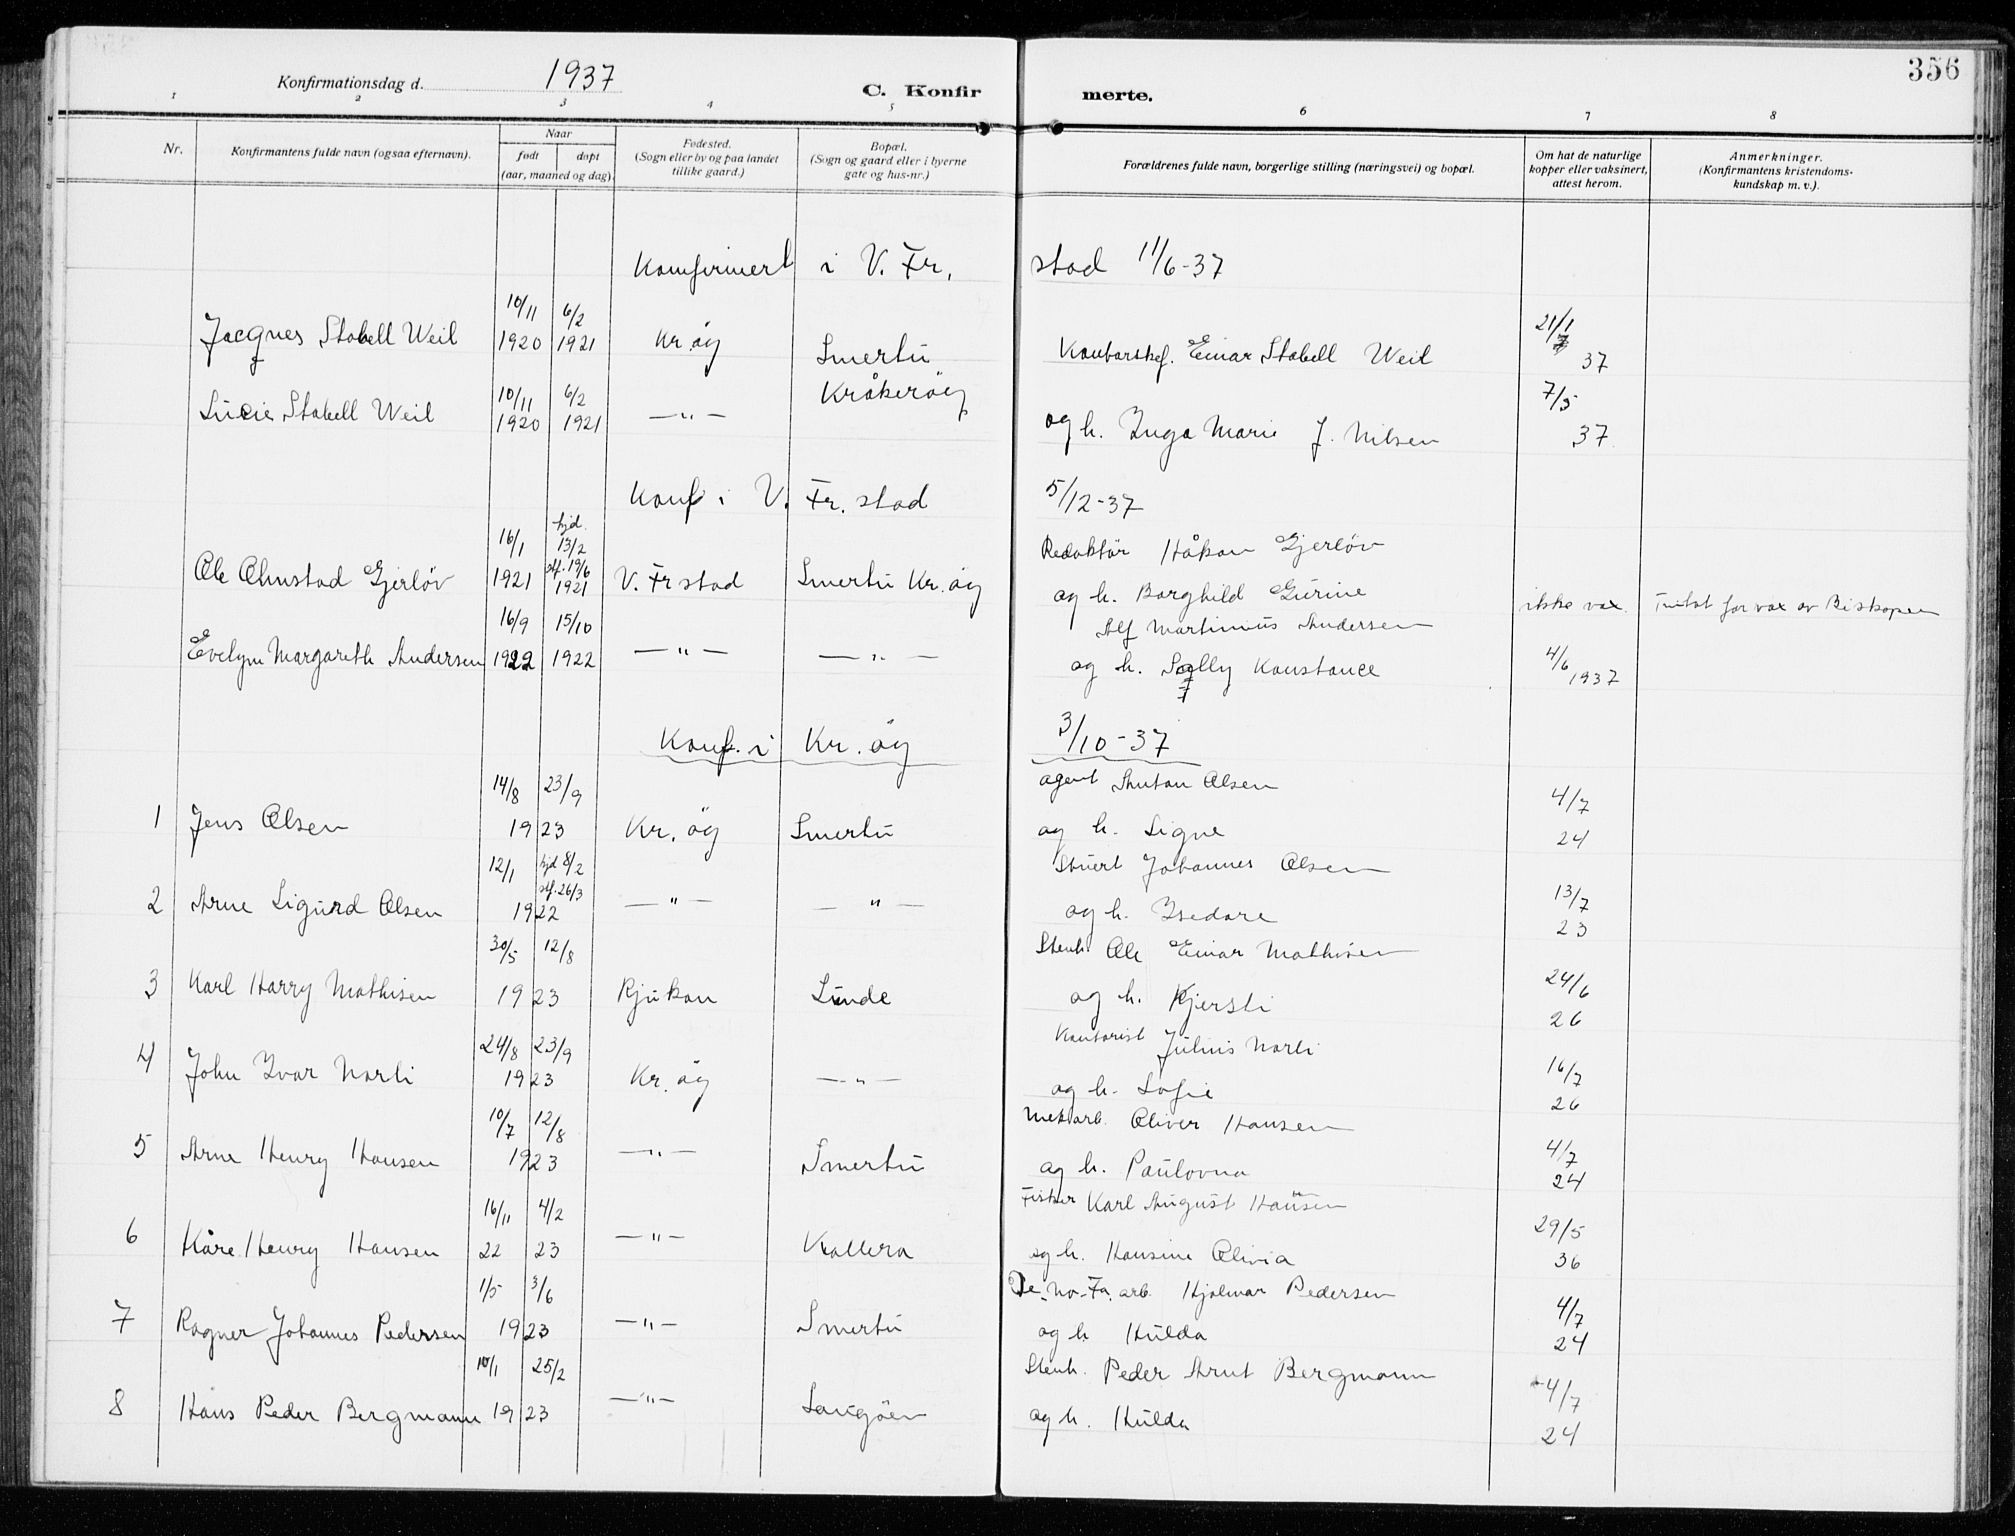 356
Konfirmationsdag d. 1937
C. Konfir merte.
1 2 3 4 5 6 7 8
Nr. Konfirmantens fulde navn (ogsaa efternavn). Naar født døpt (aar, maaned og dag). Fødested. (Sogn eller by og paa landet tillike gaard.) Bopæl. (Sogn og gaard eller i byerne gate og hus-nr.) Forældrenes fulde navn, borgerlige stilling (næringsvei) og bopæl. Om hat de naturlige kopper eller vaksinert, attest herom. Anmerkninger. (Konfirmantens kristendoms- kundskap m. v.).
Konfirmert i V. Fr. stad 11/6-37
10/11 6/2 21/1
Jacques Stabell Weil 1920 1921 Kr. øy Smertu Kontorshef. Einar Stabell Weil 37
10/11 6/2 Kråkerøy 7/5
Lucie Stabell Weil 1920 1921 —"— og h. Inga Marie J. Nilsen 37
Konf i V. Fr. stad 5/12-37
16/1 hjd. 13/2 Redaktør Håkon Gjerløv
Ole Olmstad Gjerløv 1921 stf. 19/6 1921 V. Fr stad Smertu Kr. øy og h. Borghild Gurine ikke vax. Fritat for vax av Biskopen
16/9 15/10 Alf Martinius Andersen
Evelyn Margareth Andersen 1922 1922 —"— —"— og h. Solly Konstance 4/6 1937
Konf. i Kr. øy 3/10-37
14/8 23/9 agent Anton Olsen 4/7
1 Jens Olsen 1923 Kr. øy Smertu og h. Signe 24
12/1 hjd 8/2 stf. 26/3 Stuert Johannes Olsen 13/7
2 Arne Sigurd Olsen 1922 —"— —"— og h. Isedore 23
30/5 12/8 Stenh. Ole Einar Mathisen 24/6
3 Karl Harry Mathisen 1923 Rjukan Lunde og h. Kjersti 26
24/8 23/9 Kontorist Julius Norli 16/7
4 John Ivar Norli 1923 Kr. øy —"— og h. Sofie 26
10/7 12/8 Mek arb. Oliver Hansen 4/7
5 Arne Henry Hansen 1923 —"— Smertu og h. Paulovna 24
16/11 4/2 Fisker Karl August Hansen 29/5
6 Kåre Henry Hansen 22 23 —"— Kallera og h. Hansine Olivia 36
1/5 3/6 De-No-Fa. arb. Hjalmar Pedersen 4/7
7 Ragner Johannes Pedersen 1923 —"— Smertu og h Hulda 24
10/1 25/2 Stenh. Peder Arnt Bergmann 4/7
8 Hans Peder Bergmann 1923 —"— Langøen og h. Hulda 24